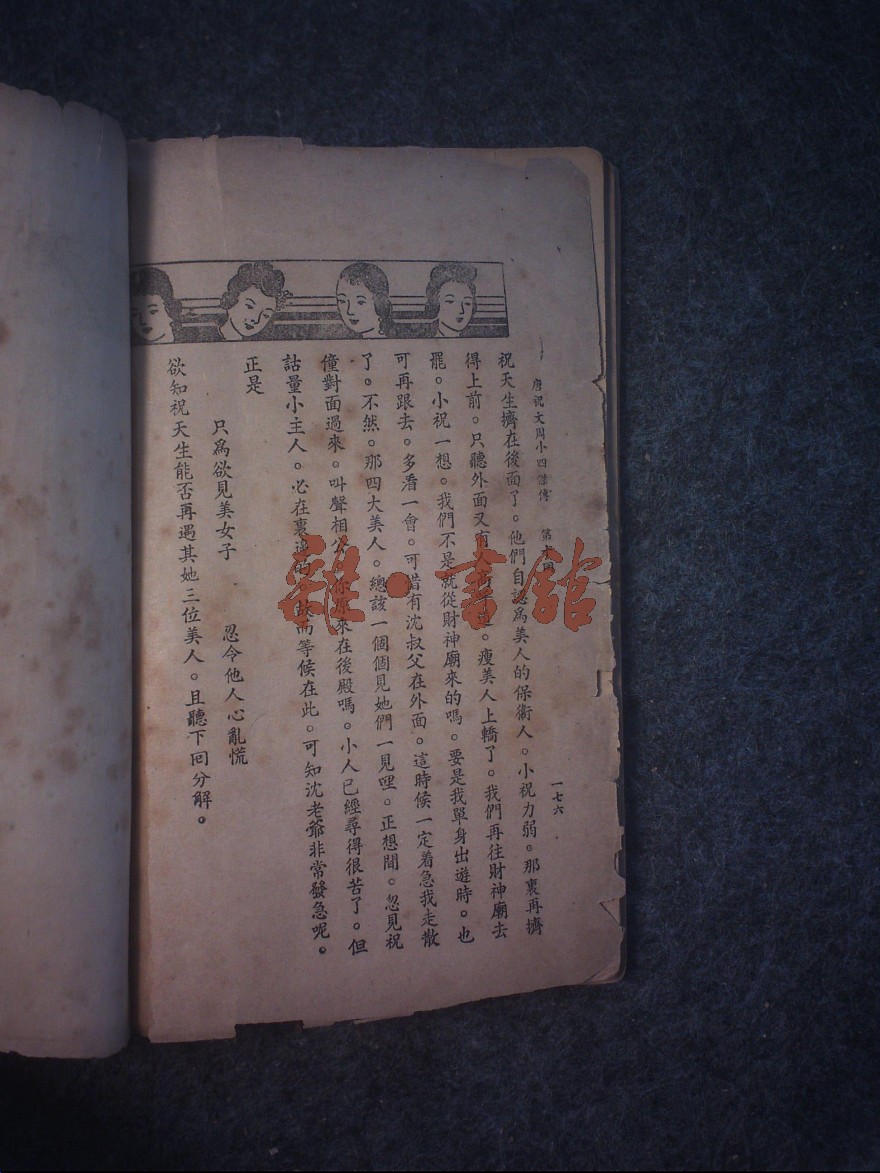 唐祝文周小四傑傳 第十回 一七六
祝天生擠在後面了。他們自認爲美人的保衛人。小祝力弱。那裏再擠
得上前。只聽外面又有人。瘦美人上轎了。我們再往財神廟去
罷。小祝一想。我們不是就從財神廟來的嗎。要是我單身出遊時。也
可再跟去。多看一會。可惜有沈叔父在外面。這時候一定着急我走散
了。不然。那四大美人。總該一個個見她們一見哩。正想間。忽見祝
僮對面過來。叫聲相公。你原來在後殿嗎。小人已經尋得很苦了。但
詁量小主人。必在裏邊的。故而等候在此。可知沈老爺非常發急呢。
正是
只爲欲見美女子 忍令他人心亂慌
欲知祝天生能否再遇其她三位美人。且聽下回分解。
雜·書館